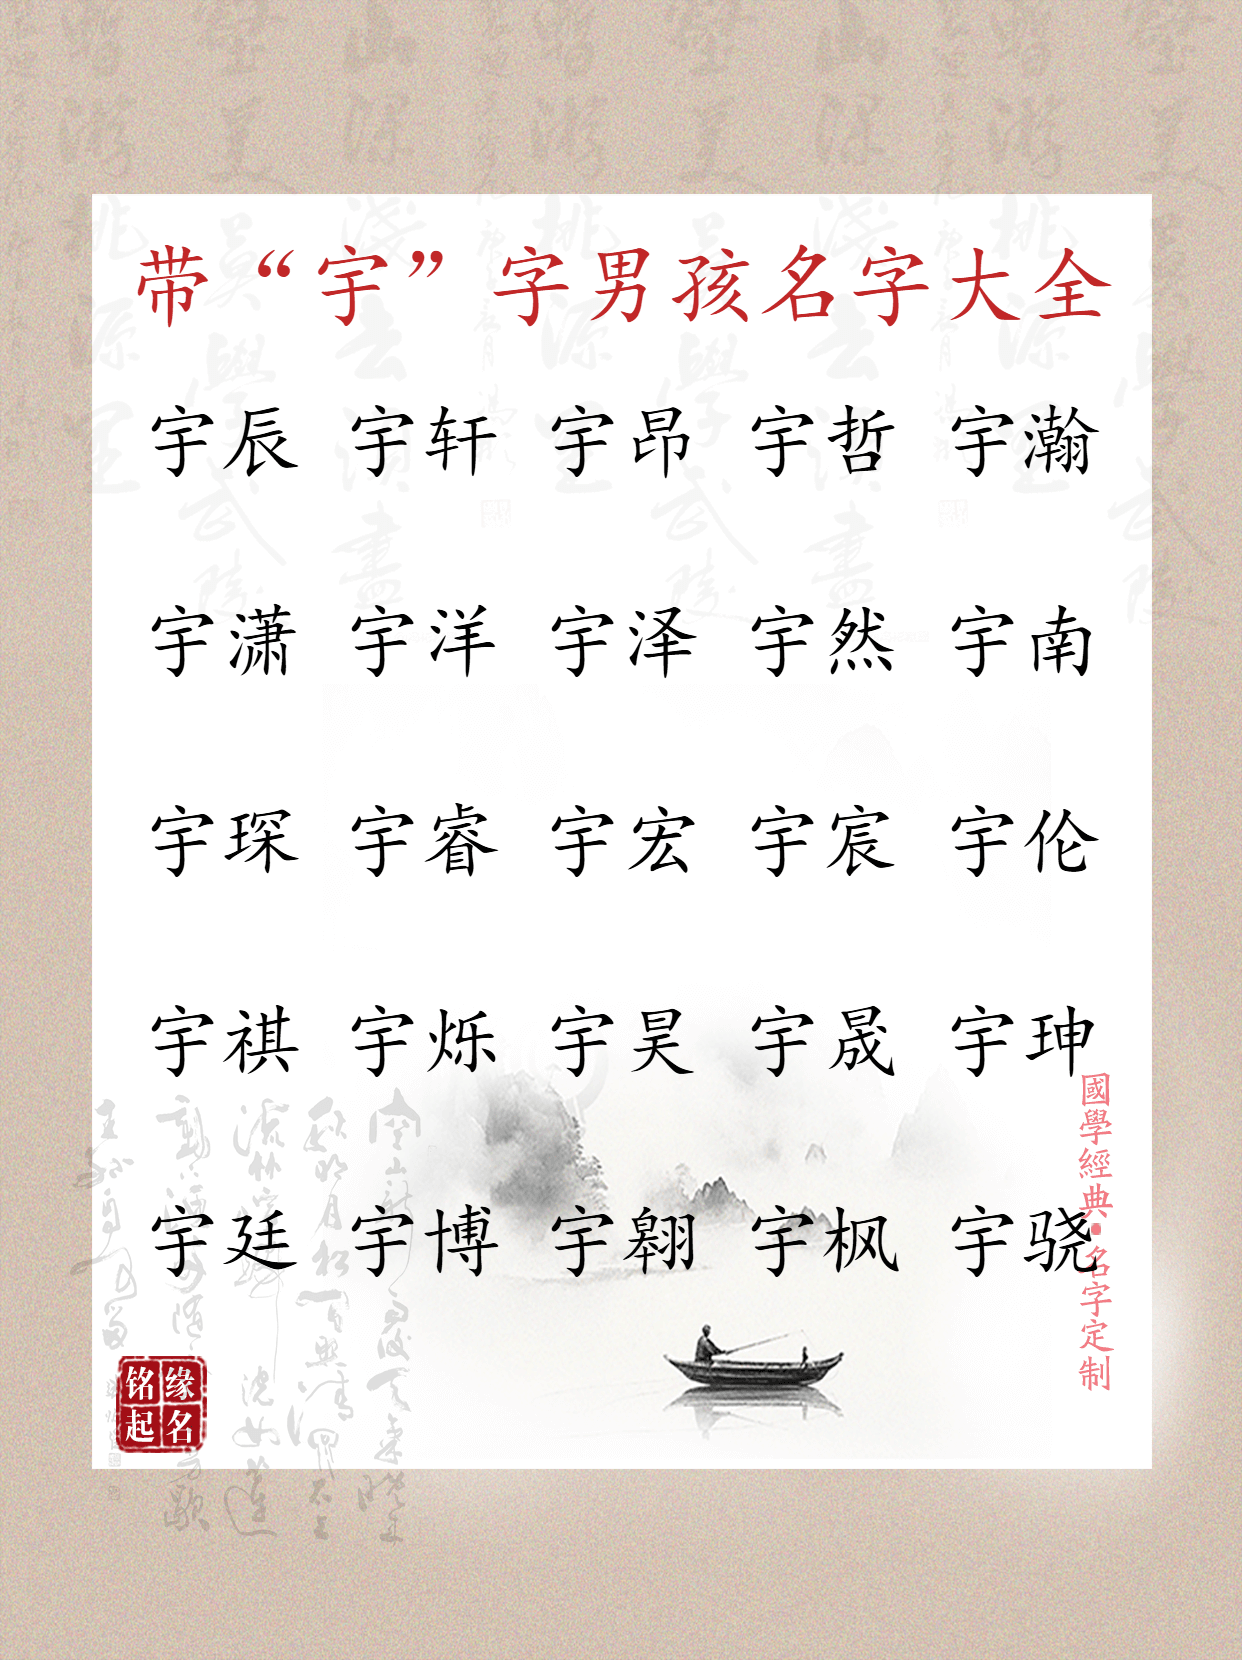 带“宇”字男孩名字大全
宇辰 宇轩 宇昂 宇哲 宇瀚
宇潇 宇洋 宇泽 宇然 宇南
宇琛 宇睿 宇宏 宇宸 宇伦
宇祺 宇烁 宇昊 宇晟 宇珅
宇廷 宇博 宇翱 宇枫 宇骁
國學經典·名字定制
铭缘
起名